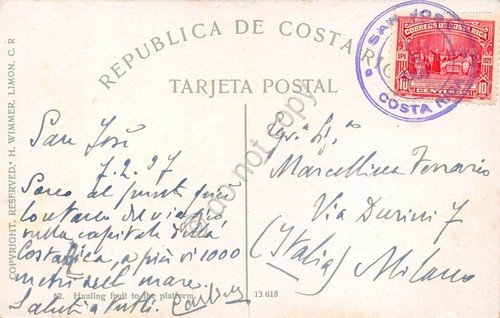 REPUBLICA DE COSTA RICA
TARJETA POSTAL
SAN JOSE
COSTA RICA
CORREOS DE COSTA RICA
10 10
COPYRIGHT RESERVED.- H. WIMMER, LIMON, C. R
San José
7.2.37
Sono al punto più
lontano del viaggio
nella capitale della
Costa Rica, a più di 1000
metri sul mare.
Saluti a tutti.
Marcellina Ferrario
Via Durini 7
(Italia) Milano
62. Hauling fruit to the platform.
13 618
do not copy